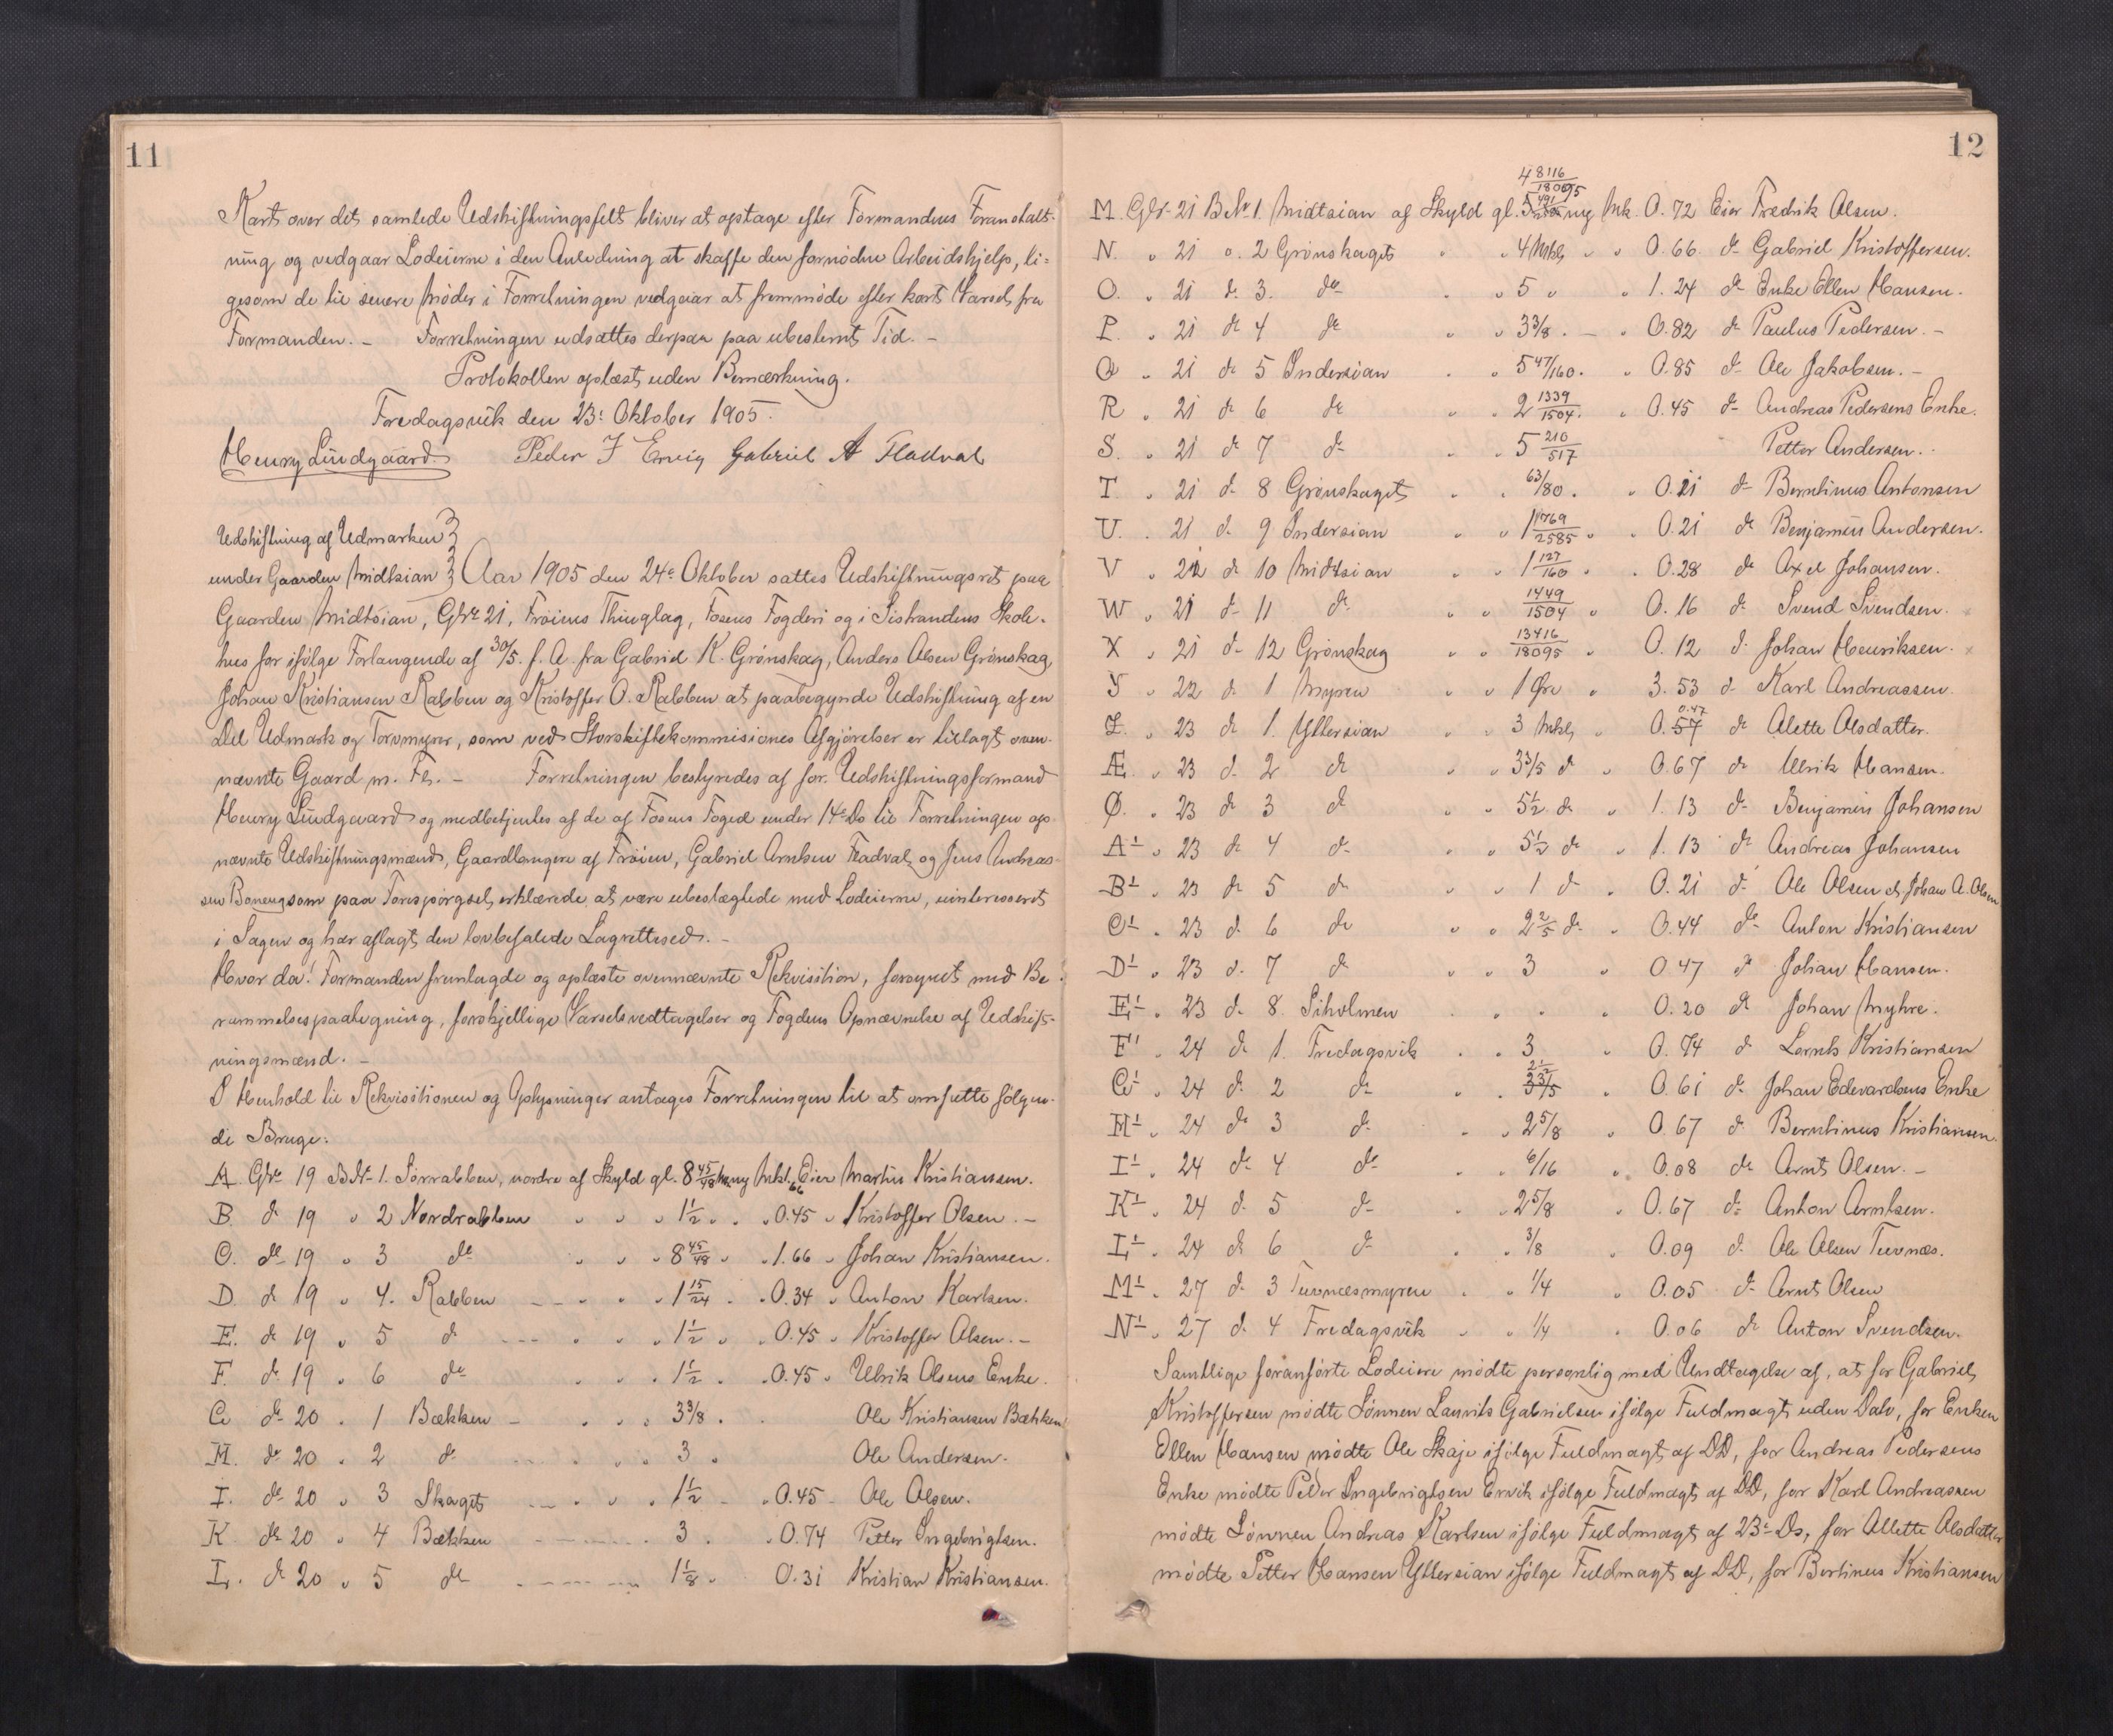 11
Kart over det samlede Udskiftningsfelt bliver at optage efter Formandens Foranstalt-
ning og vedgaar Lodeierne i den Anledning at skaffe den fornödne Arbeidshjelp, li-
gesom de til senere Möder i Forretningen vedgaar at fremmöde efter kort Varsel fra
Formanden. – Forretningen udsættes derpaa paa ubestemt Tid. –
Protokollen oplæst uden Bemærkning.
Fredagsvik den 23: Oktober 1905.
Henry Lindgaard. Peder J Ervig Gabriel A Fladval
Udskiftning af Udmarken
under Gaarden Midtsian Aar 1905 den 24e Oktober sattes Udskiftningsret paa
Gaarden Midtsian, GNr 21, Fröiens Thinglag, Fosens Fogderi og i Sistrandens Skole-
hus for ifölge Forlangende af 30/5. f. A. fra Gabriel K. Grönskag, Anders Olsen Grönskag,
Johan Kristiansen Rabben og Kristoffer O. Rabben at paabegynde Udskiftning af en
Del Udmark og Torvmyrer, som ved Storskiftekommisiones Afgjörelser er tillagt oven-
nævnte Gaard m. Fl. – Forretningen bestyredes af for. Udskiftningsformand
Henry Lindgaard og medbetjentes af de af Fosens Foged under 14e Ds til Forretningen op-
nævnte Udskiftningsmænd, Gaardbrugere af Fröien, Gabriel Arntsen Fladval og Jens Andreas-
sen som paa Forespörgsel erklærede at være ubeslægtede med Lodeierne, uinteresseret
i Sagen og har aflagt den lovbefalede Lagrettesed. –
Hvor da! Formanden fremlagde og oplæste ovennævnte Rekvisition, forsynet med Be-
rammelsespaategning, forskjellige Varselsvedtagelser og Fogdens Opnævnelse af Udskift-
ningsmænd. –
I Henhold til Rekvisitionen og Oplysninger antages Forretningen til at omfatte fölgen-
de Bruge:
A. GNr 19 BNr 1. Sörrabben, nordre af Skyld gl. 8 45/48 ny Mk 1.66 Eier Martin Kristiansen.
B. do 19 " 2 Nordrabben " " " 1 1/2 " " " 0.45 " Kristoffer Olsen. –
C. do 19 " 3 do " " " 8 45/48 " " 1.66 " Johan Kristiansen.
D. do 19 " 4. Rabben " " " 1 15/24 " " 0.34 " Anton Karlsen.
E. do 19 " 5 do " " " 1 1/2 " " 0.45 " Kristoffer Olsen. –
F. do 19 " 6 do " " " 1 1/2 " " 0.45 " Ulrik Olsens Enke.
G do 20 " 1 Bækken – " " " 3 3/8 " Ole Kristiansen Bækken
H. do 20 " 2 do " " " 3 " Ole Andersen.
I. do 20 " 3 Skaget " " " 1 1/2 " 0.45 Ole Olsen.
K do 20 " 4 Bækken 3 " " 0.74 Petter Ingebrigtsen.
L. do 20 " 5 do 1 1/8 " 0.31 Kristian Kristiansen.
12
4 8116/18095
M. GNr 21 BNr 1. Midtsian af Skyld gl. ny Mk. 0.72 Eier Fredrik Olsen.
N. " 21 " 2 Grönskaget " " 4 Mkl " " 0.66 do Gabriel Kristoffersen.
O. " 21 do 3. do " " 5 " " 1.24 do Enke Ellen Hansen.
P. " 21 do 4 do " " 3 3/8. – " 0.82 do Paulus Pedersen. –
Q " 21 do 5 Indersian " " 5 47/160. " 0.85 do Ole Jakobsen. –
R " 21 do 6 do " " 2 1339/1504. " 0.45 do Andreas Pedersens Enke.
S. " 21 do 7 do " " 5 210/517 Petter Andersen.
T " 21 do 8 Grönskaget " " 63/80. " 0.21 do Berntinus Antonsen
U. " 21 do 9 Indersian " " 1 1769/2585 " " 0.21 do Benjamin Andersen.
V " 21 do 10 Midtsian " " 1 127/160 " " 0.28 do Axel Johansen.
W " 21 do 11 do " " 1449/1504 " 0.16 do Svend Svendsen.
X " 21 do 12 Grönskag " " 13416/18095 " 0.12 do Johan Henriksen.
Y " 22 do 1 Myren " " 1 Öre " 3.53 do Karl Andreassen.
Z. " 23 do 1. Yttersian " " 3 Mkl " 0.57 0.47 do Alette Olsdatter.
Æ. " 23 do 2 do " " 3 3/5 do " 0.67 do Ulrik Hansen.
Ø. " 23 do 3 do " " 5 1/2 do " 1.13 do Benjamin Johansen
A1 " 23 do 4 do " " 5 1/2 do " 1.13 do Andreas Johansen
B1 " 23 do 5 do " " 1 do " 0.21 do Ole Olsen Johan A. Olsen
C1 " 23 do 6 do " " 2 2/5 do " 0.44 do Anton Kristiansen
D1 " 23 do 7 do " " 3 " 0.47 do Johan Hansen.
E1 " 23 do 8. Siholmen " " " 0.20 do Johan Myhre.
F1 " 24 do 1. Fredagsvik " " 3 " 0.74 do Lornts Kristiansen
G1 " 24 do 2 do " " 3 3/5 2 1/2 " 0.61 do Johan Edevardsens Enke
H1 " 24 do 3 do " " 2 5/8 " 0.67 do Berntinus Kristiansen.
I1 " 24 do 4 do " " 6/16 " 0.08 do Arnt Olsen. –
K1 " 24 do 5 do " " 2 5/8 " 0.67 do Anton Arntsen.
L1 " 24 do 6 do " " 3/8 " 0.09 do Ole Olsen Tuvnæs.
M1 " 27 do 3 Tuvnæsmyren " " 1/4 " 0.05 do Arnt Olsen
N1 " 27 do 4 Fredagsvik " " 1/4 " 0.06 do Anton Svendsen.
Samtlige foranförte Lodeiere mödte personlig med Undtagelse af, at for Gabriel
Kristoffersen mödte Sönnen Laurits Gabrielsen ifölge Fuldmagt uden Dato, for Enken
Ellen Hansen mödte Ole Skaje ifölge Fuldmagt af DD, for Andreas Pedersens
Enke mödte Peder Ingebrigtsen Ervik ifölge Fuldmagt af DD, for Karl Andreassen
mödte Sönnen Andreas Karlsen ifölge Fuldmagt af 23e Ds, for Allette Olsdatter
mödte Petter Hansen Yttersian ifölge Fuldmagt af DD, for Bertinus Kristiansen